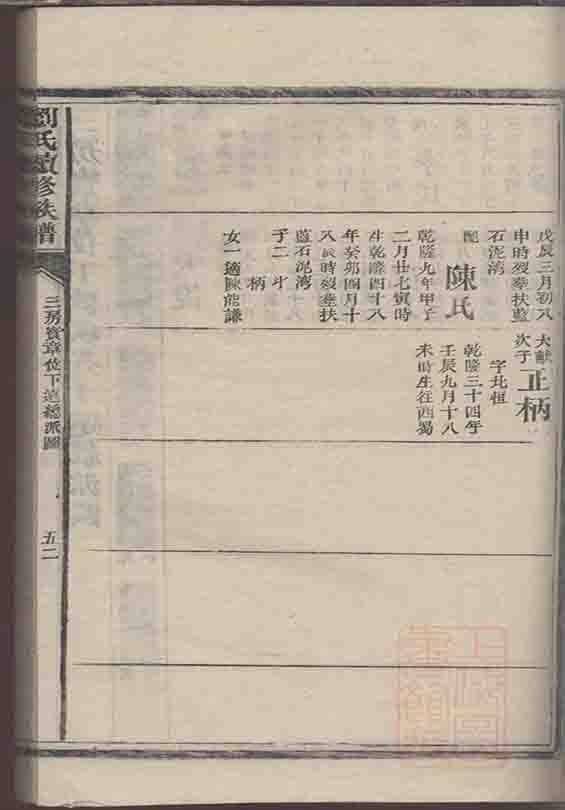 戊辰三月初八
申時歿葬扶藍
石泥湾
配陳氏
乾隆九年甲子
二月廿七寅時
生乾隆四十八
年癸卯四月十
八亥時歿葬扶
藍石泥湾
子二才
柄
女一適陳能謙
大獻
次子
正柄
字北恒
乾隆三十四年
壬辰九月十八
未時生往西蜀
劉氏續修族譜
三房賓章位下道總派圖
五二